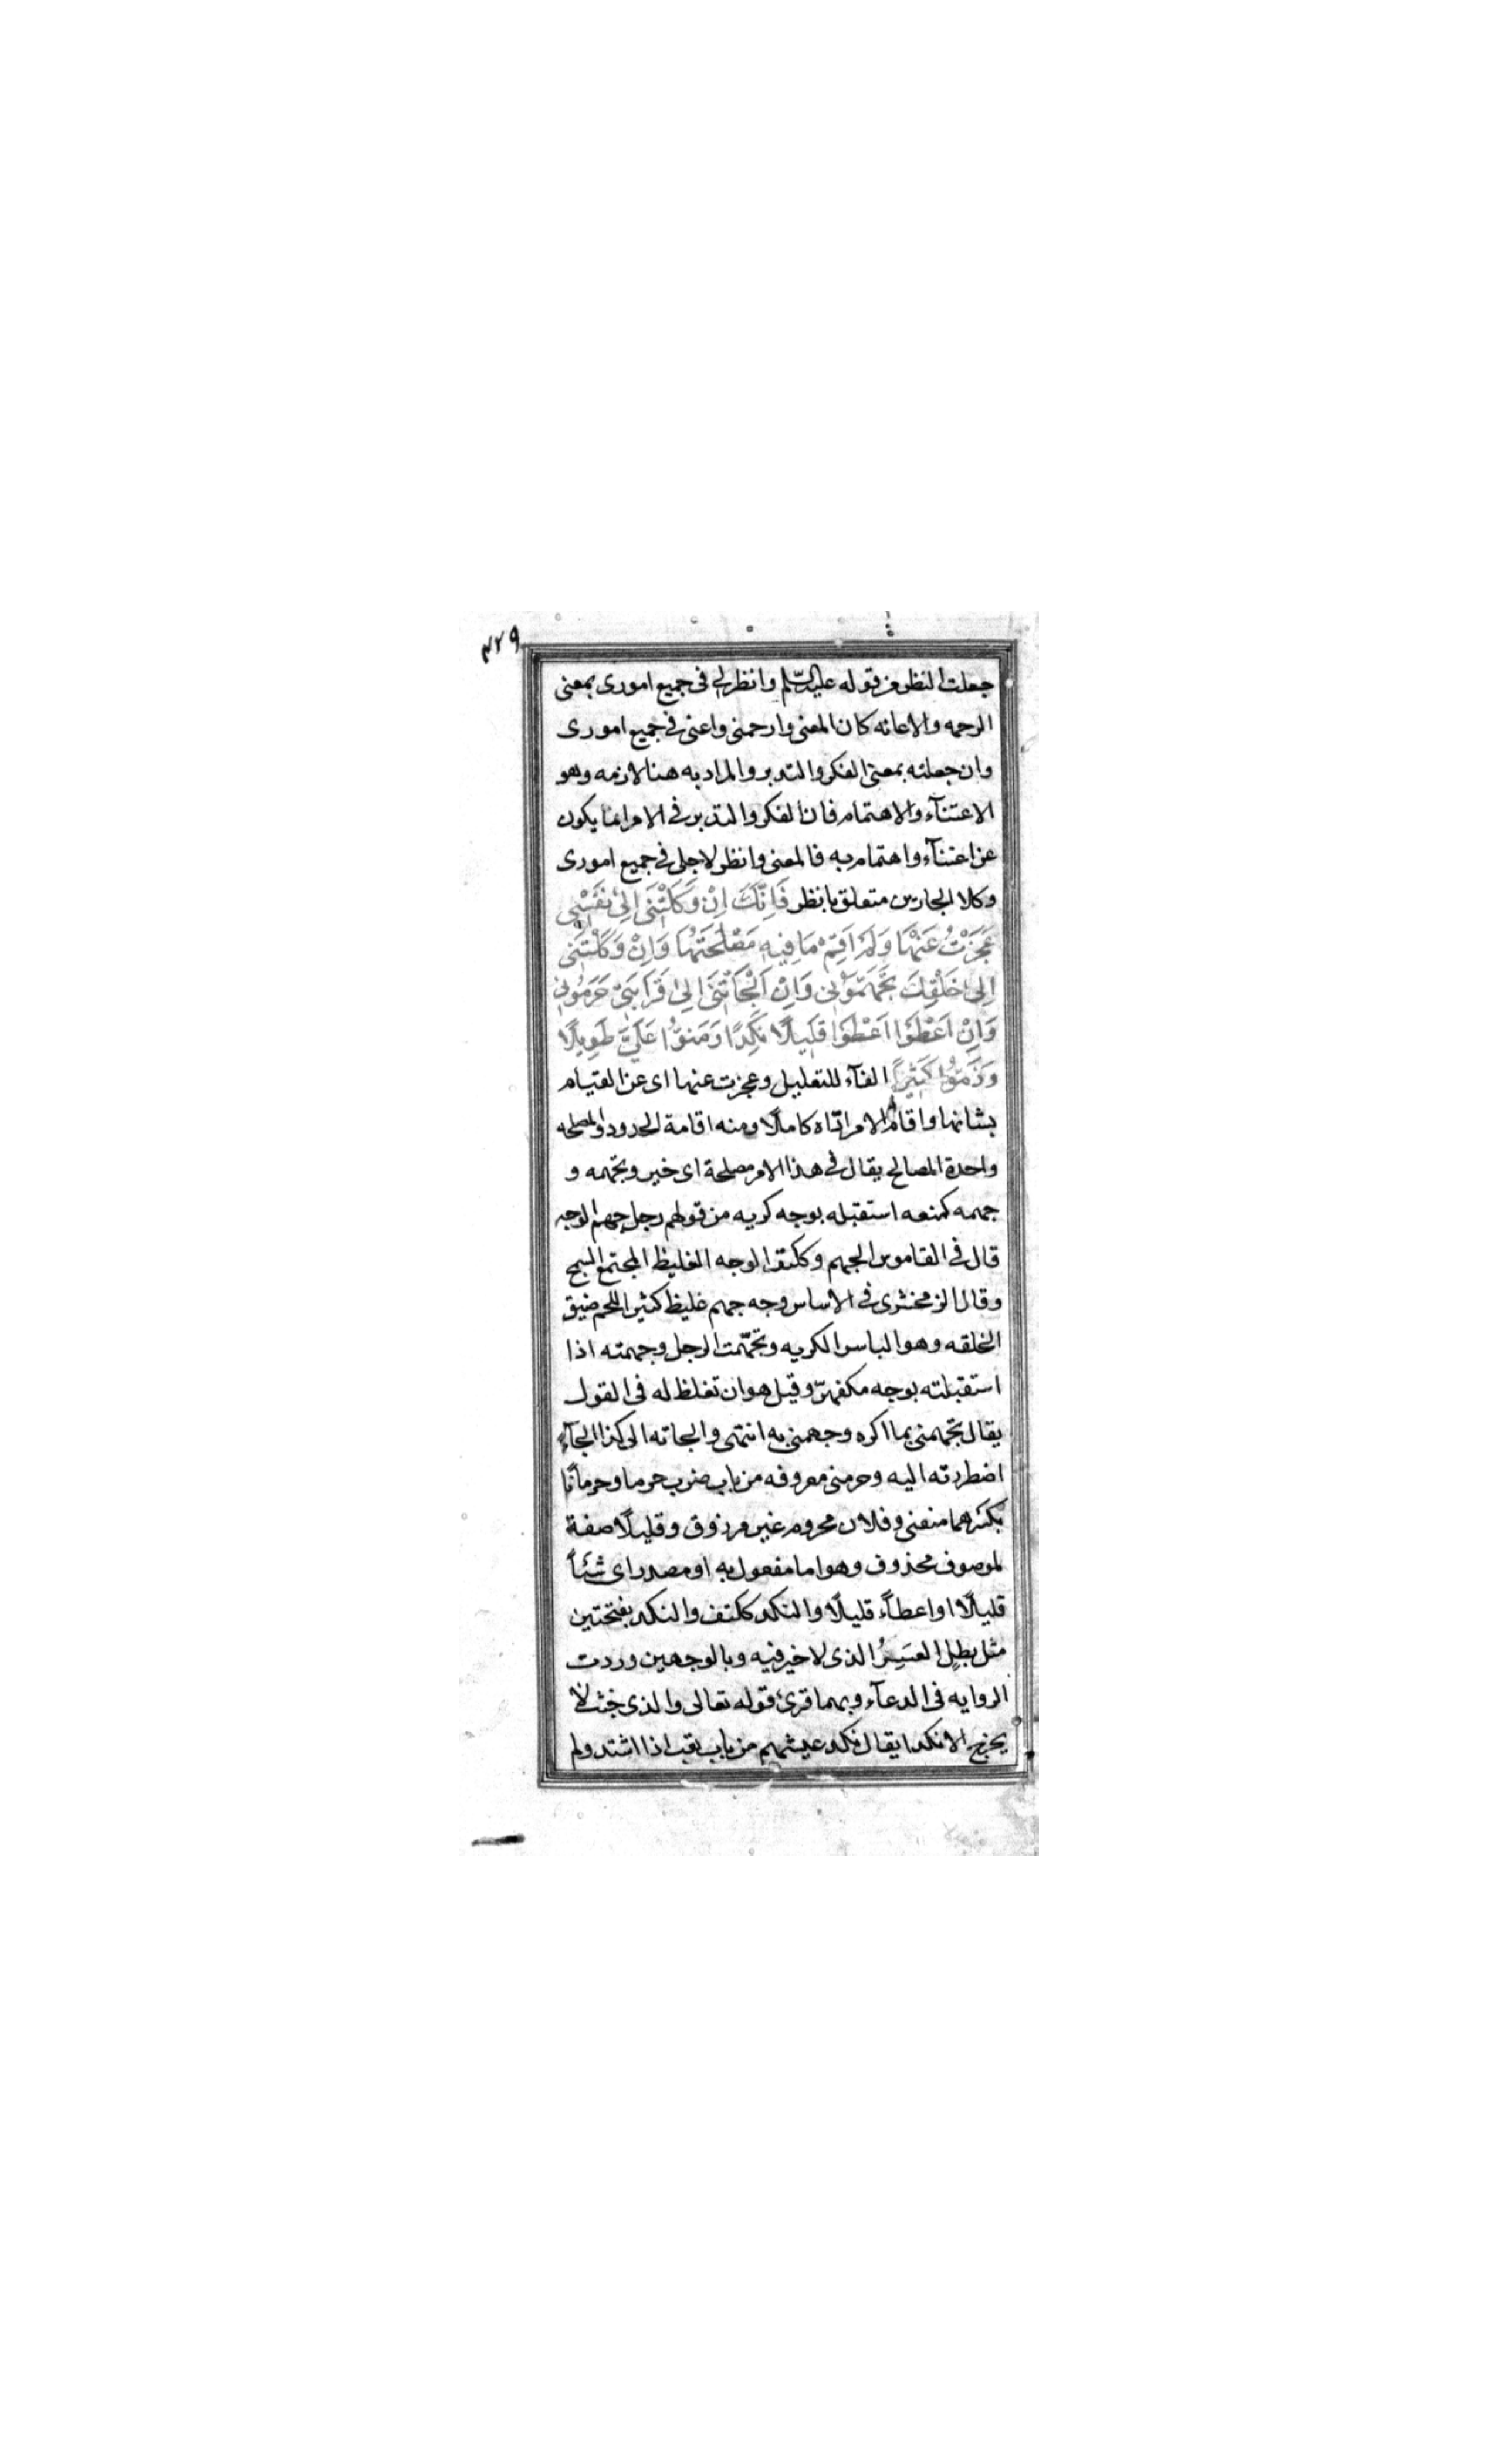 ٤٢٩
جعلت النظر من قوله عليه السّلم وانظر لي في جميع اموري بمعنى
الرحمه والاعانه كان المعنى وارحمني واعني في جميع اموری
وان جعلته بمعنى الفكر والتدبر والمراد به هنا لازمه وهو
الاعتنآء والاهتمام فان الفكر والتدبر في الامر انما يكون
عن اعتنآء واهتمام به فالمعنى وانظر لاجلي في جميع اموری
وكلا الجارين متعلق بانظر فَاِنَّكَ اِنْ وَكَلْتَنى اِلىٰ نَفْسْى
عَجَزْتُ عَنْهَا وَلَمْ اُقِمْ مَا فِيهِ مَصْلَحَتُهَا وَاِنْ وَكَلْتَنى
اِلىٰ خَلْقِكَ تَجَهَّمُوْنى وَاِنْ اَلْجَأتَنى اِلىٰ قَرَابَتى حَرَمُونى
وَاِنْ اَعْطَوْا اَعْطَوْا قَلِيلًا نَكِدًا وَمَنوُّا عَلَيَّ طَوِيلًا
وَذَمّوُا كَثِيرًا الفآء للتعليل وعجزت عنها اى عن القيام
بشانها واقام الامر اتاه كاملًا ومنه اقامة الحدود والمصلحه
واحدة المصالح يقال في هذا الامر مصلحة اى خير وتجهمه و
جهمه كمنعه استقبله بوجه كريه من قولهم رجل جهم الوجه
قال في القاموس الجهم وككتف الوجه الغليظ المجتمع السمج
وقال الزمخشرى في الاساس وجه جهم غليظ كثير اللحم ضيق
الخلقه وهو الباسر الكريه وتجهّمت الرجل وجهمته اذا
استقبلته بوجه مكفهرّ وقيل هو ان تغلظ له فى القول
يقال تجهمني بما اكره وجهمني به انتهى والجاته الى كذا الجآء
اضطررته اليه وحرمنى معروفه من باب ضرب حرما وحرمانًا
بكسرهما منعنى وفلان محروم غير مرزوق وقليلًا صفة
لموصوف محذوف وهو اما مفعول به او مصدر اى شئًا
قليلًا او اعطآءً قليلًا والنكد ككتف والنكد بفتحتين
مثل بطل العَسِرُ الذى لا خير فيه وبالوجهين وردت
الروايه فى الدعآء وبهما قرئ قوله تعالى والذى خبث لا
يخرج الا نكدا يقال نكد عيشهم من باب تعب اذا اشتد ولم